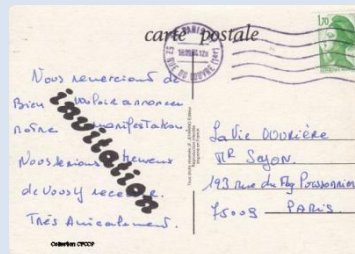 carte postale
PARIS
RUE DU LOUVRE
1,70
Nous remercions de
Bien vouloir annoncer
notre manifestation
Nous serions heureux
de vous y recevoir.
Très Amicalement.
invitation
La Vie OUVRIÈRE
MR
193 rue du Fbg Poissonnière
75009 PARIS.
Collection CPCCP